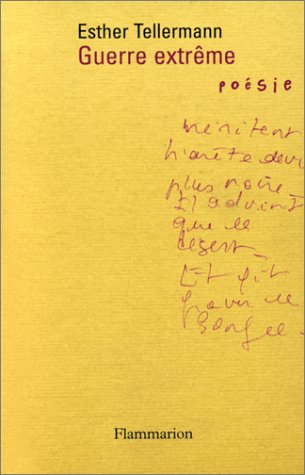 Esther Tellermann
Guerre extrême
poésie
méritent
plus noire
Il advient
que le
désert
Et fit
Flammarion